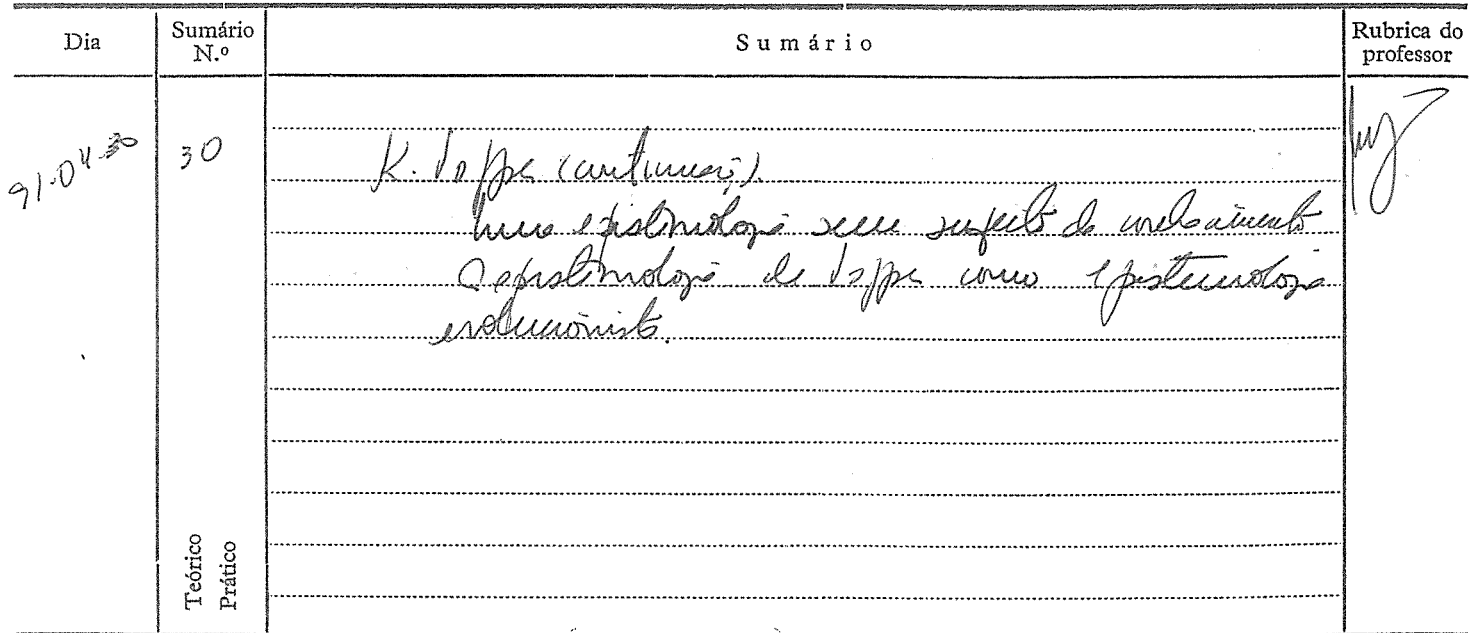 Dia
Sumário N.º
Sumário
Rubrica do professor
91-04-30
30
K. Popper (continuação).
Uma epistemologia sem sujeito de conhecimento
A epistemologia de Popper como epistemologia
evolucionista.
Teórico
Prático